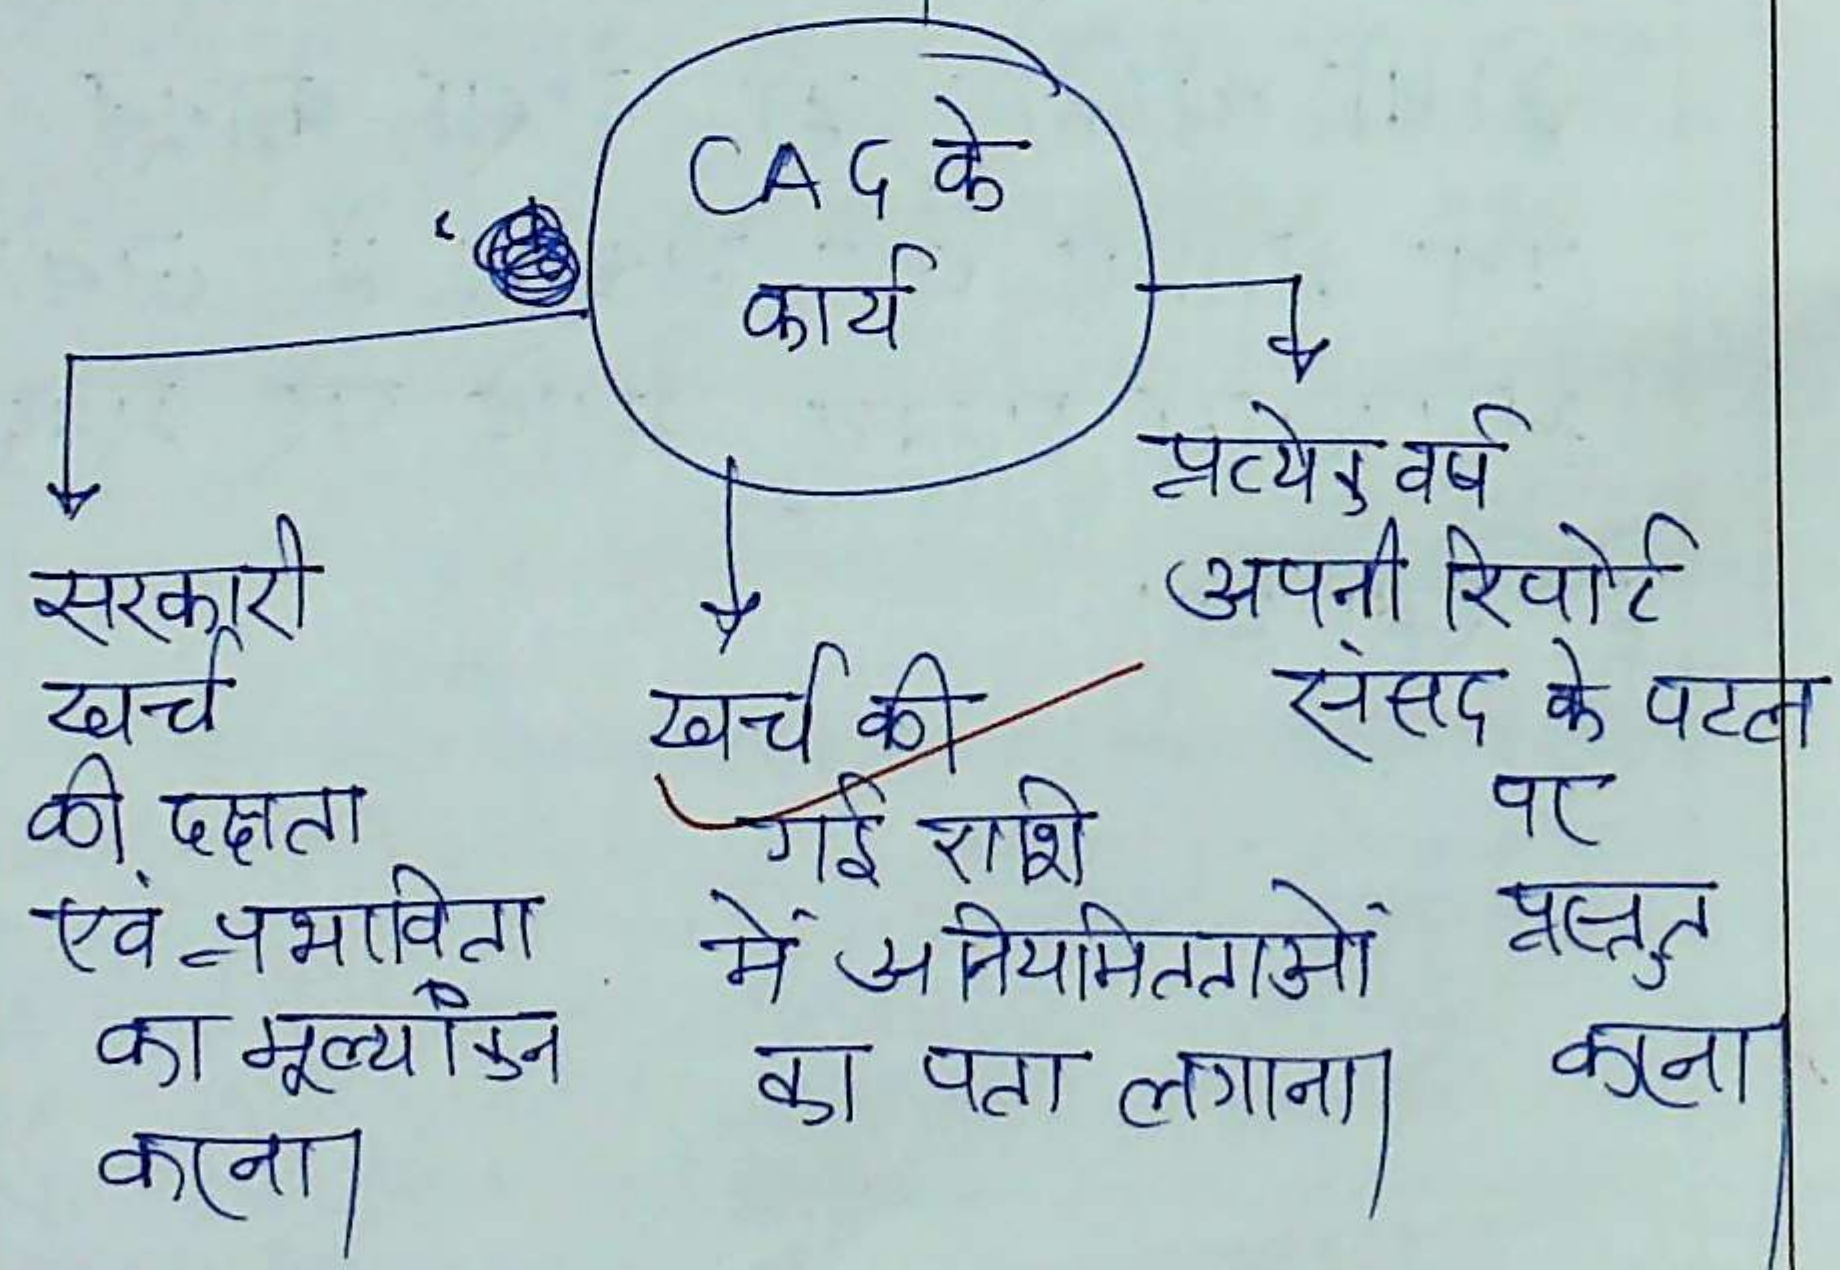 CAG के
कार्य
सरकारी
खर्च
की दक्षता
एवं प्रभाविता
का मूल्यांकन
करना।
खर्च की
गई राशि
में अनियमितताओं
का पता लगाना।
प्रत्येक वर्ष
अपनी रिपोर्ट
संसद के पटल
पर
प्रस्तुत
करना।